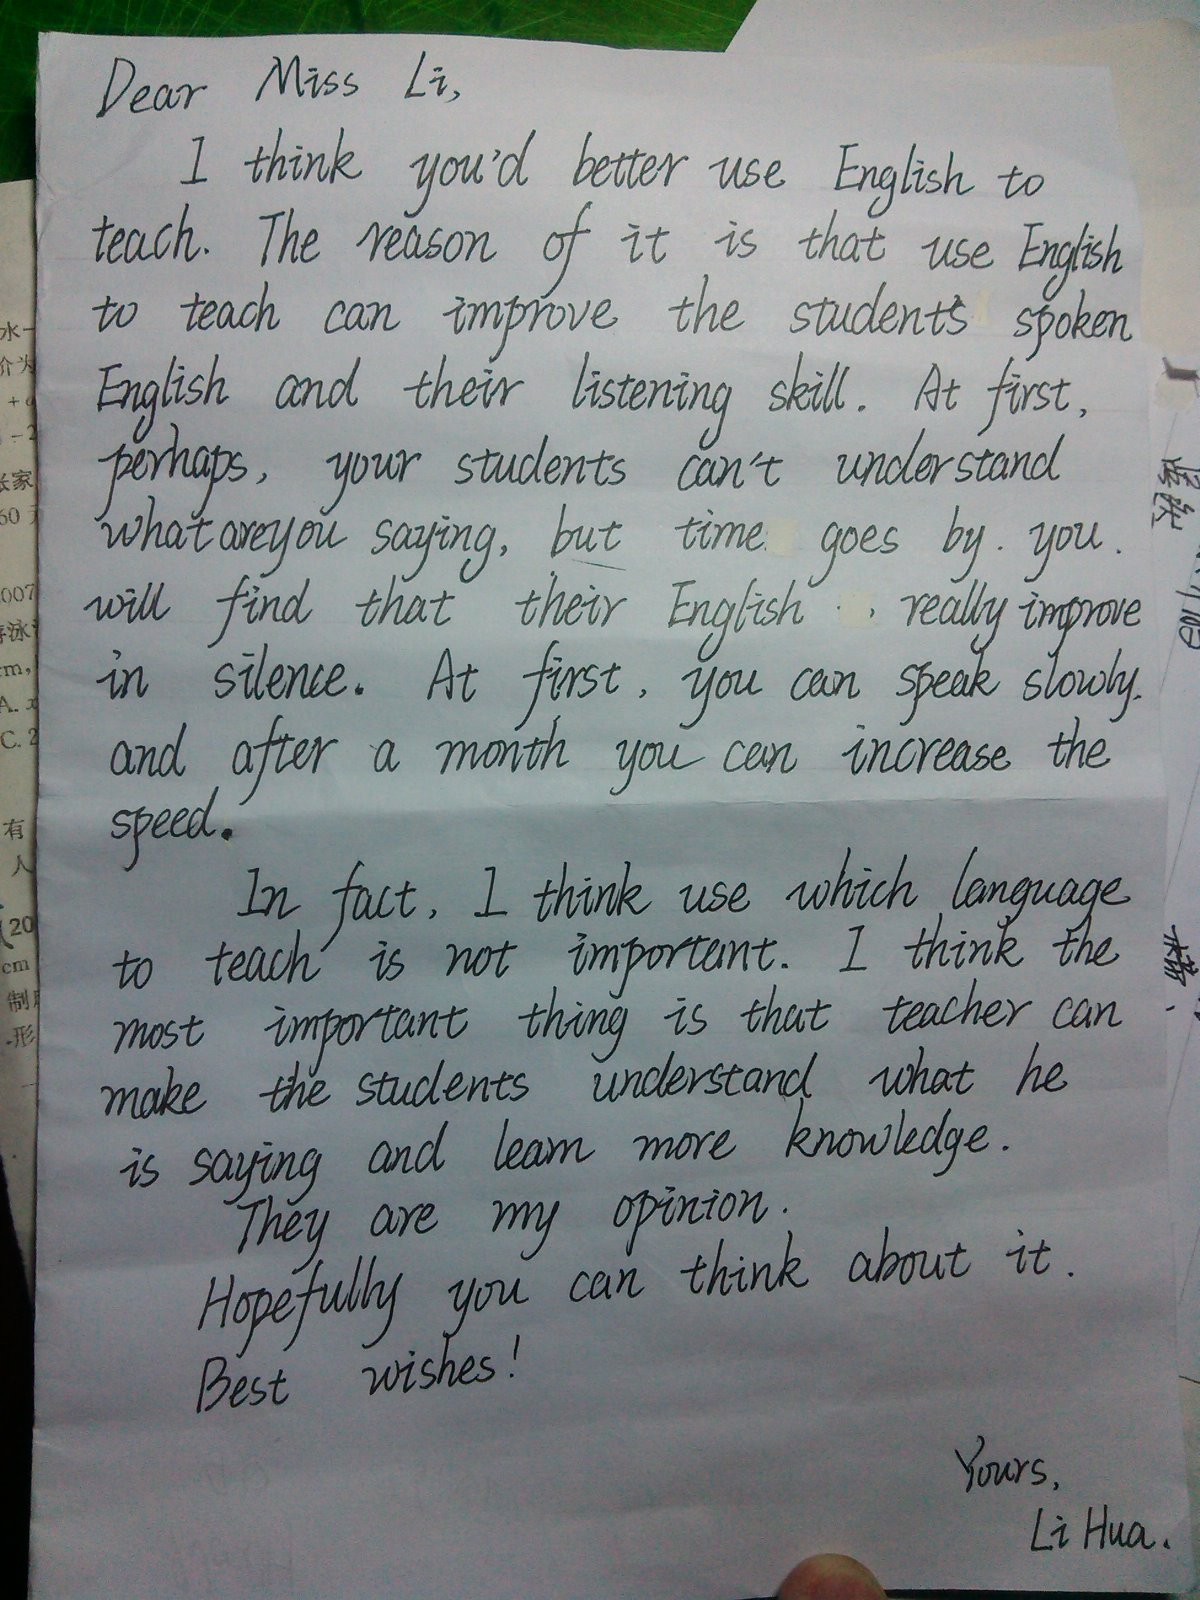 Dear Miss Li,
I think you'd better use English to
teach. The reason of it is that use English
to teach can improve the students' spoken
English and their listening skill. At first,
perhaps, your students can't understand
what are you saying, but time goes by. you
will find that their English really improve
in silence. At first, you can speak slowly.
and after a month you can increase the
speed.
In fact, I think use which language
to teach is not important. I think the
most important thing is that teacher can
make the students understand what he
is saying and learn more knowledge.
They are my opinion.
Hopefully you can think about it.
Best wishes!
Yours,
Li Hua.
水
价为
张家
60
007
游泳
cm,
A. x
C. 2
有
人
20
cm
制
形